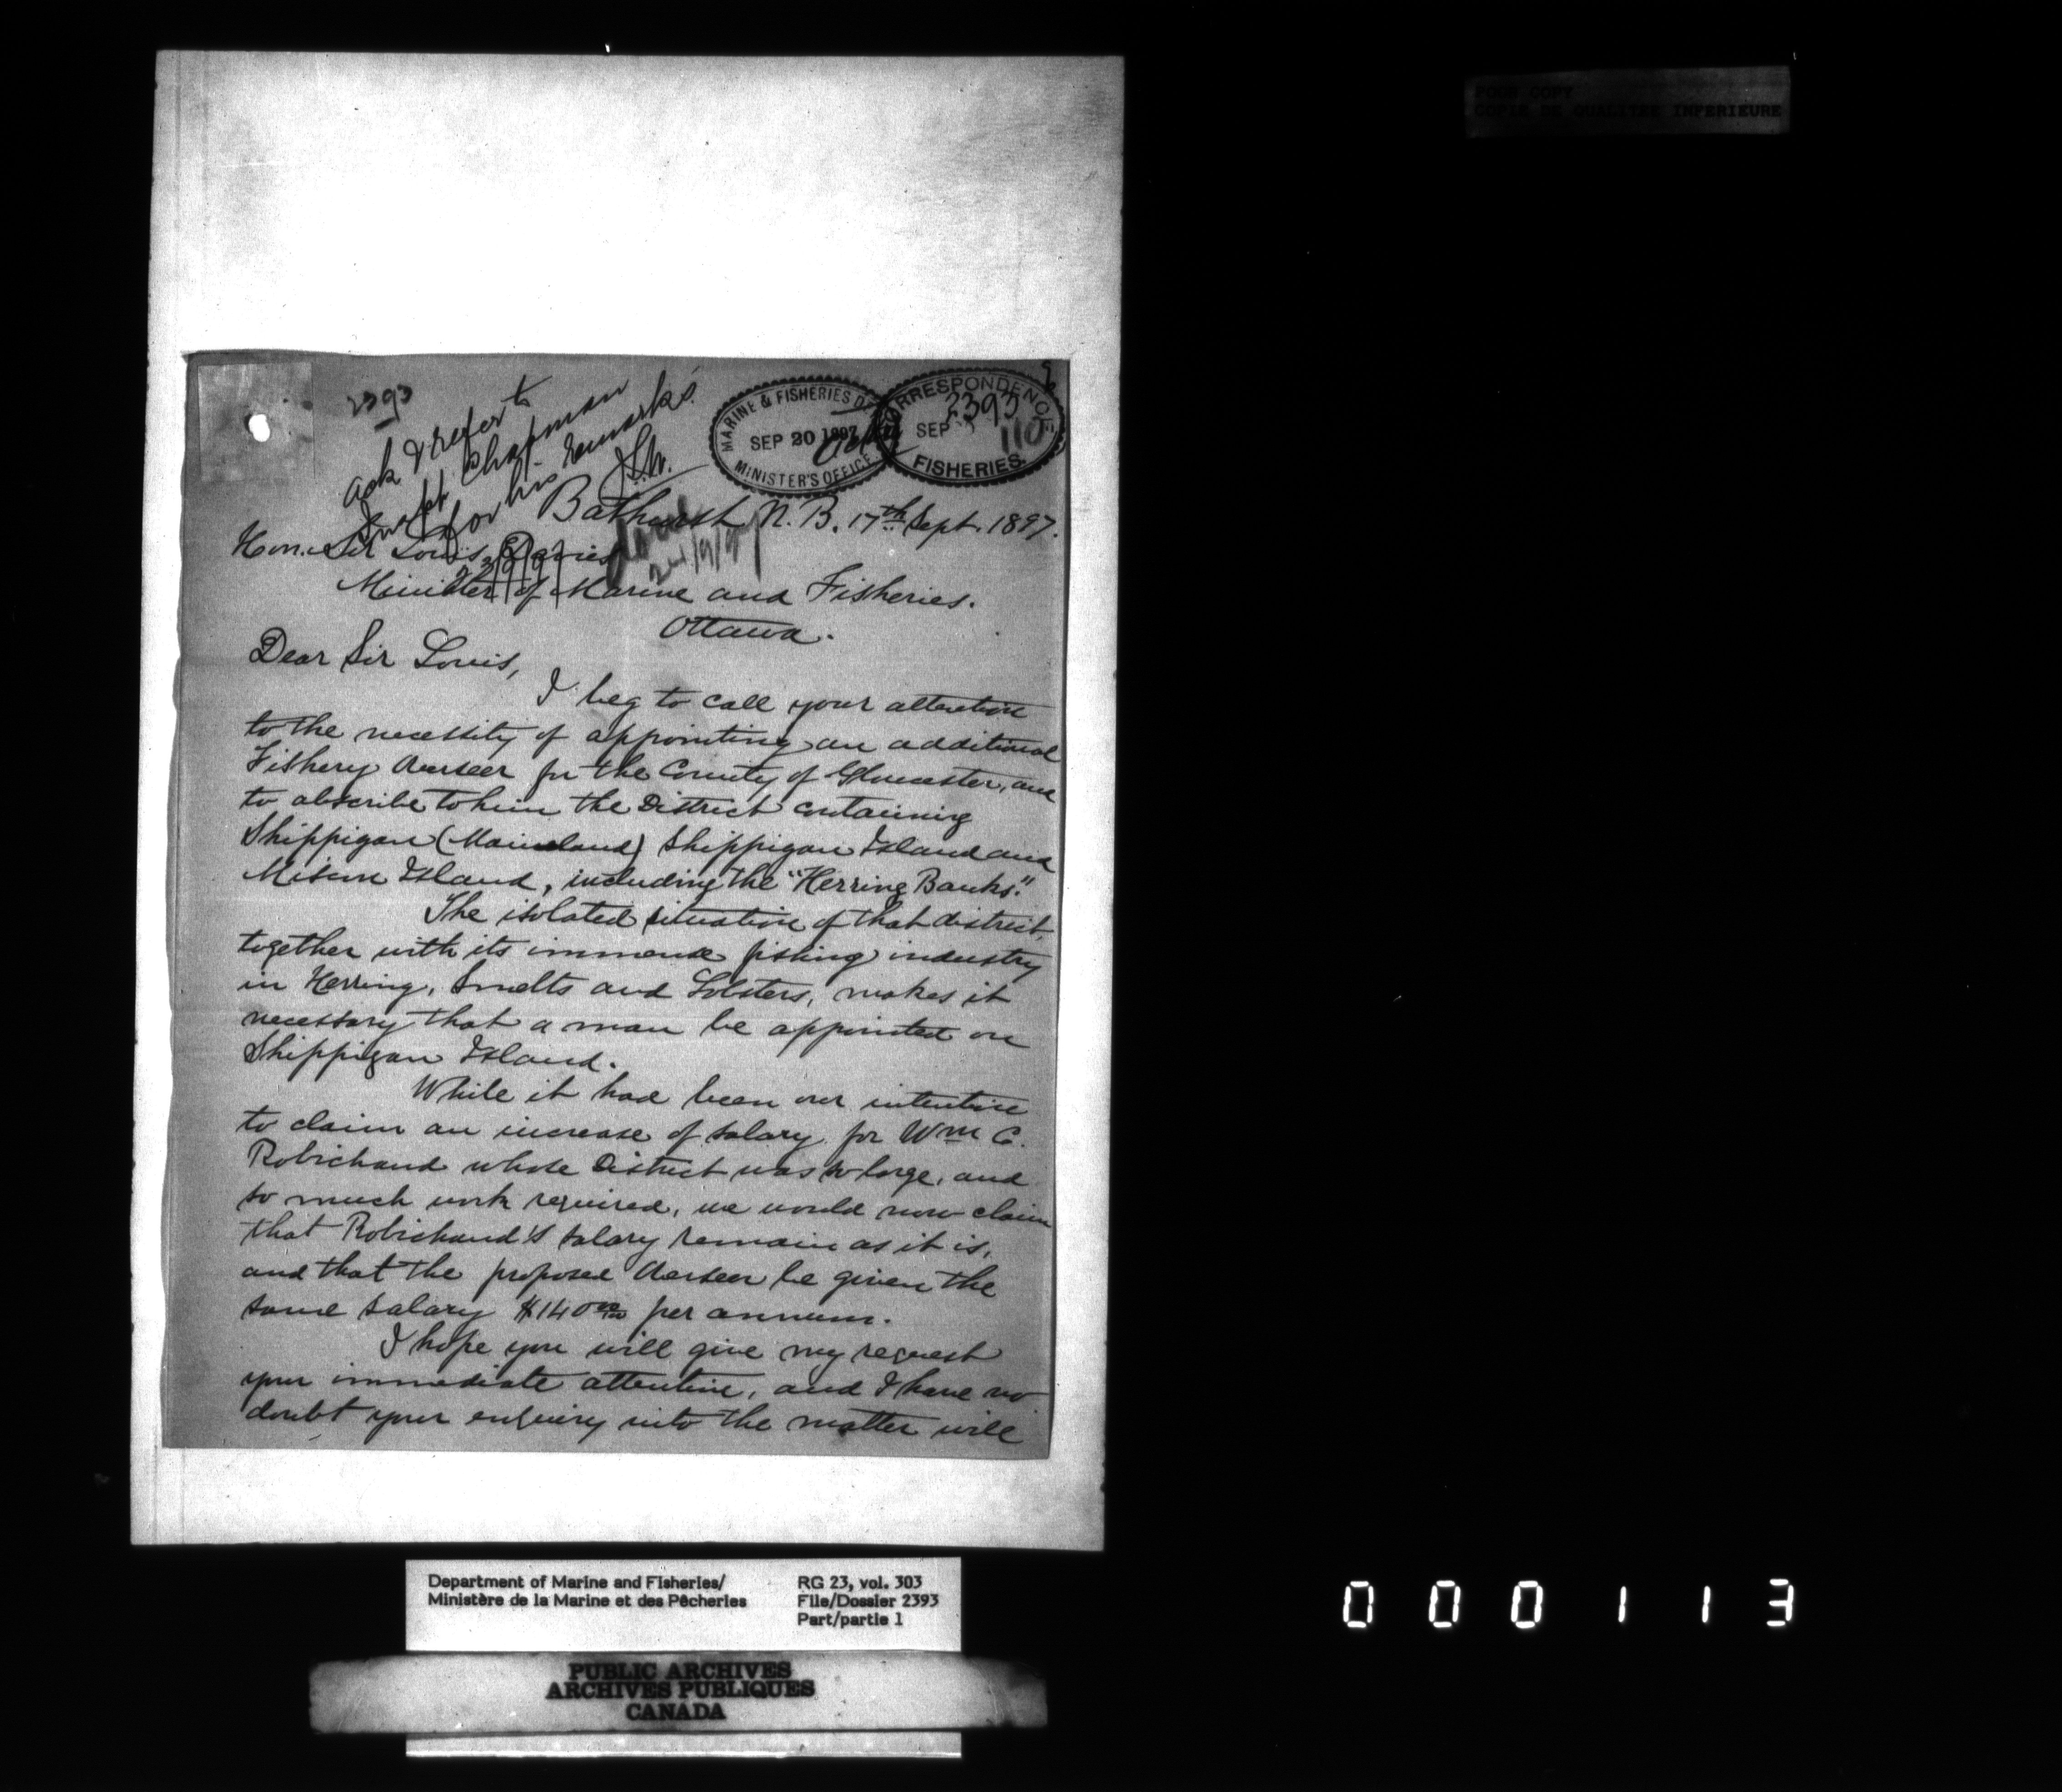 POOR COPY
COPIE DE QUALITEE INFERIEURE
2393
ack & refer to
Inspt. Chapman
for his remarks
MARINE & FISHERIES
SEP 20 1897
MINISTER'S OFFICE
CORRESPONDENCE
2393
SEP
110
FISHERIES.
Bathurst N. B. 17th Sept. 1897.
Hon. Sir Louis Davies
24/9/97
Minister of Marine and Fisheries.
Ottawa.
Dear Sir Louis,
I beg to call your attention
to the necessity of appointing an additional
Fishery Overseer for the County of Gloucester, and
to abscribe to him the District containing
Shippigan (Mainland) Shippigan Island and
Miscou Island, including the "Herring Banks."
The isolated situation of that district,
together with its immense fishing industry
in Herring, Smelts and Lobsters, makes it
necessary that a man be appointed on
Shippigan Island.
While it had been our intention
to claim an increase of salary for Wm C.
Robichaud whose District was so large, and
so much work required, we would now claim
that Robichaud's salary remain as it is,
and that the proposed Overseer be given the
same salary $140 00/100 per annum.
I hope you will give my request
your immediate attention, and I have no
doubt your enquiry into the matter will
Department of Marine and Fisheries/
Ministère de la Marine et des Pêcheries
RG 23, vol. 303
File/Dossier 2393
Part/partie 1
PUBLIC ARCHIVES
ARCHIVES PUBLIQUES
CANADA
000113